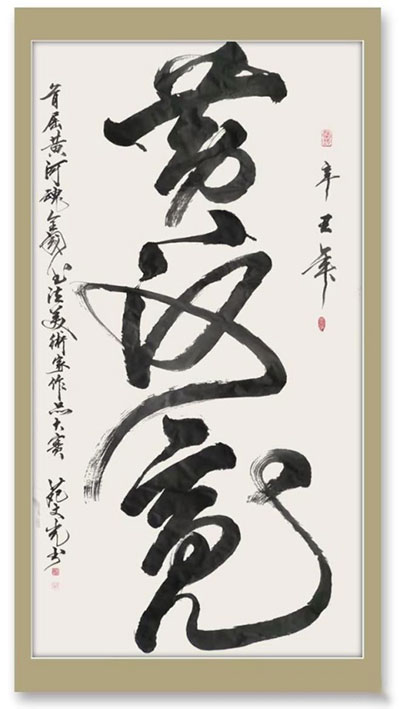 辛丑年
黄河魂
首届黄河魂全国书法美术家作品大赛 范文先书